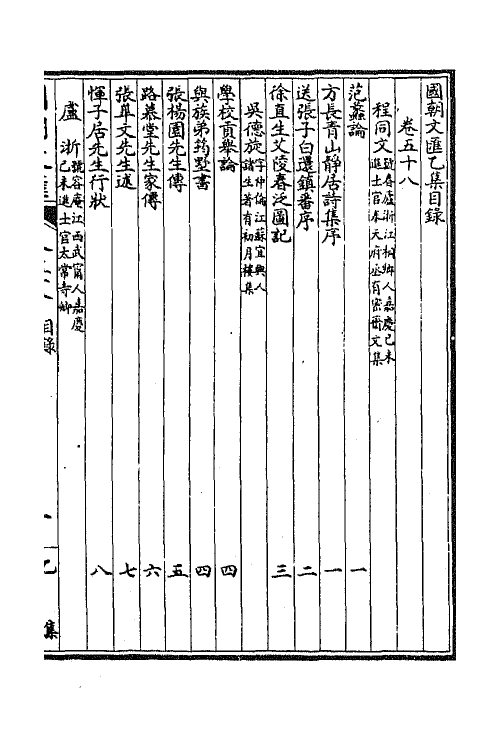 國朝文匯乙集目錄
卷五十八
程同文 號春廬浙江桐鄉人嘉慶己未
進士官奉天府丞有密齋文集
范蠡論 一
方長青山靜居詩集序 一
送張子白還鎮番序 二
徐直生艾陵春泛圖記 三
吳德旋 字仲倫江蘇宜興人
諸生著有初月樓集
學校貢舉論 四
與族弟筠墅書 四
張楊園先生傳 五
路慕堂先生家傳 六
張皋文先生述 七
惲子居先生行狀 八
盧浙 號容庵江西武甯人嘉慶
己未進士官太常寺卿
目錄
一
乙
集